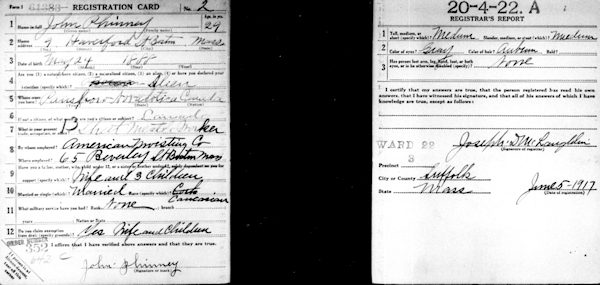 Form 1 REGISTRATION CARD No. 2
1 Name in full John Phinney Age, in yrs. 29
2 Home address 9 Haverford St Boston Mass
3 Date of birth May 24 1888
4 Are you (1) a natural-born citizen, (2) a naturalized citizen, (3) an alien, (4) or have you declared your intention (specify which)? Alien
5 Where were you born? Nova Scotia Canada
6 If not a citizen, of what country are you a citizen or subject?
7 What is your present trade, occupation, or office? Maker
8 By whom employed? American Co
Where employed? 65 Beverly St Boston Mass
9 Have you a father, mother, wife, child under 12, or a sister or brother under 12, solely dependent on you for support (specify which)? Wife and 3 Children
10 Married or single (which)? Married Race (specify which)? Caucasian
11 What military service have you had? Rank None branch
years Nation or State
12 Do you claim exemption from draft (specify grounds)? Yes Wife and Children
I affirm that I have verified above answers and that they are true.
ORDER NUMBER
352
John Phinney
(Signature or mark)
20-4-22. A
REGISTRAR'S REPORT
1 Tall, medium, or short (specify which)? Medium Slender, medium, or stout (which)? Medium
2 Color of eyes? Gray Color of hair? Auburn Bald?
3 Has person lost arm, leg, hand, foot, or both eyes, or is he otherwise disabled (specify)? None
I certify that my answers are true, that the person registered has read his own answers, that I have witnessed his signature, and that all of his answers of which I have knowledge are true, except as follows:
WARD 22
Joseph McLaughlin
(Signature of registrar)
Precinct 3
City or County Suffolk
State Mass June 5-1917
(Date of registration)